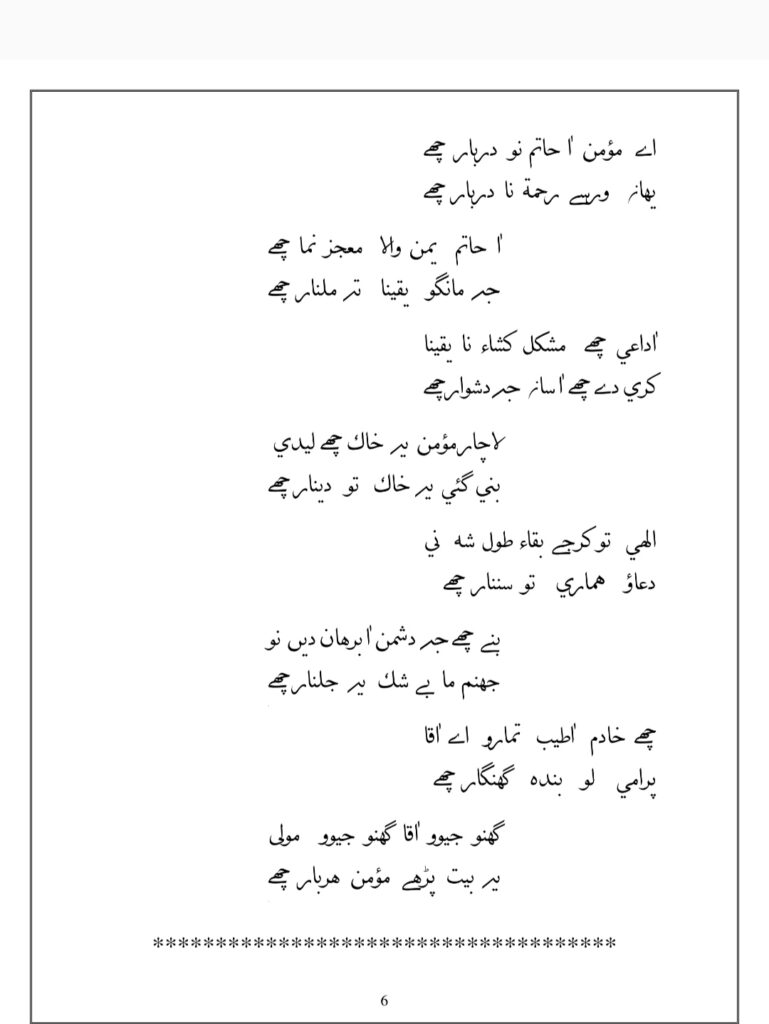 اے مؤمن اْ حاتم نو دربار چھے
يهانہ ورسے رحمة نا دربار چھے
اْ حاتم يمن والا معجز نما چھے
جہ مانگو يقينا تہ ملنار چھے
اْداعي چھے مشكل كشاء نا يقينا
كري دے چھے اْسانہ جہ دشوار چھے
لاچار مؤمن يہ خاك چھے ليدي
بني گئي يہ خاك تو دينار چھے
الهي تو كرجے بقاء طول شه ني
دعاؤ هماري تو سننار چھے
بنے چھے جہ دشمن اْ برهان ديں نو
جهنم ما بے شك يہ جلنار چھے
چھے خادم اْطيب تمارو اے اْقا
پرامي لو بنده گهنگار چھے
گھنو جيوو اْقا گھنو جيوو مولى
يہ بيت پڑھے مؤمن هربار چھے
*************************************
6